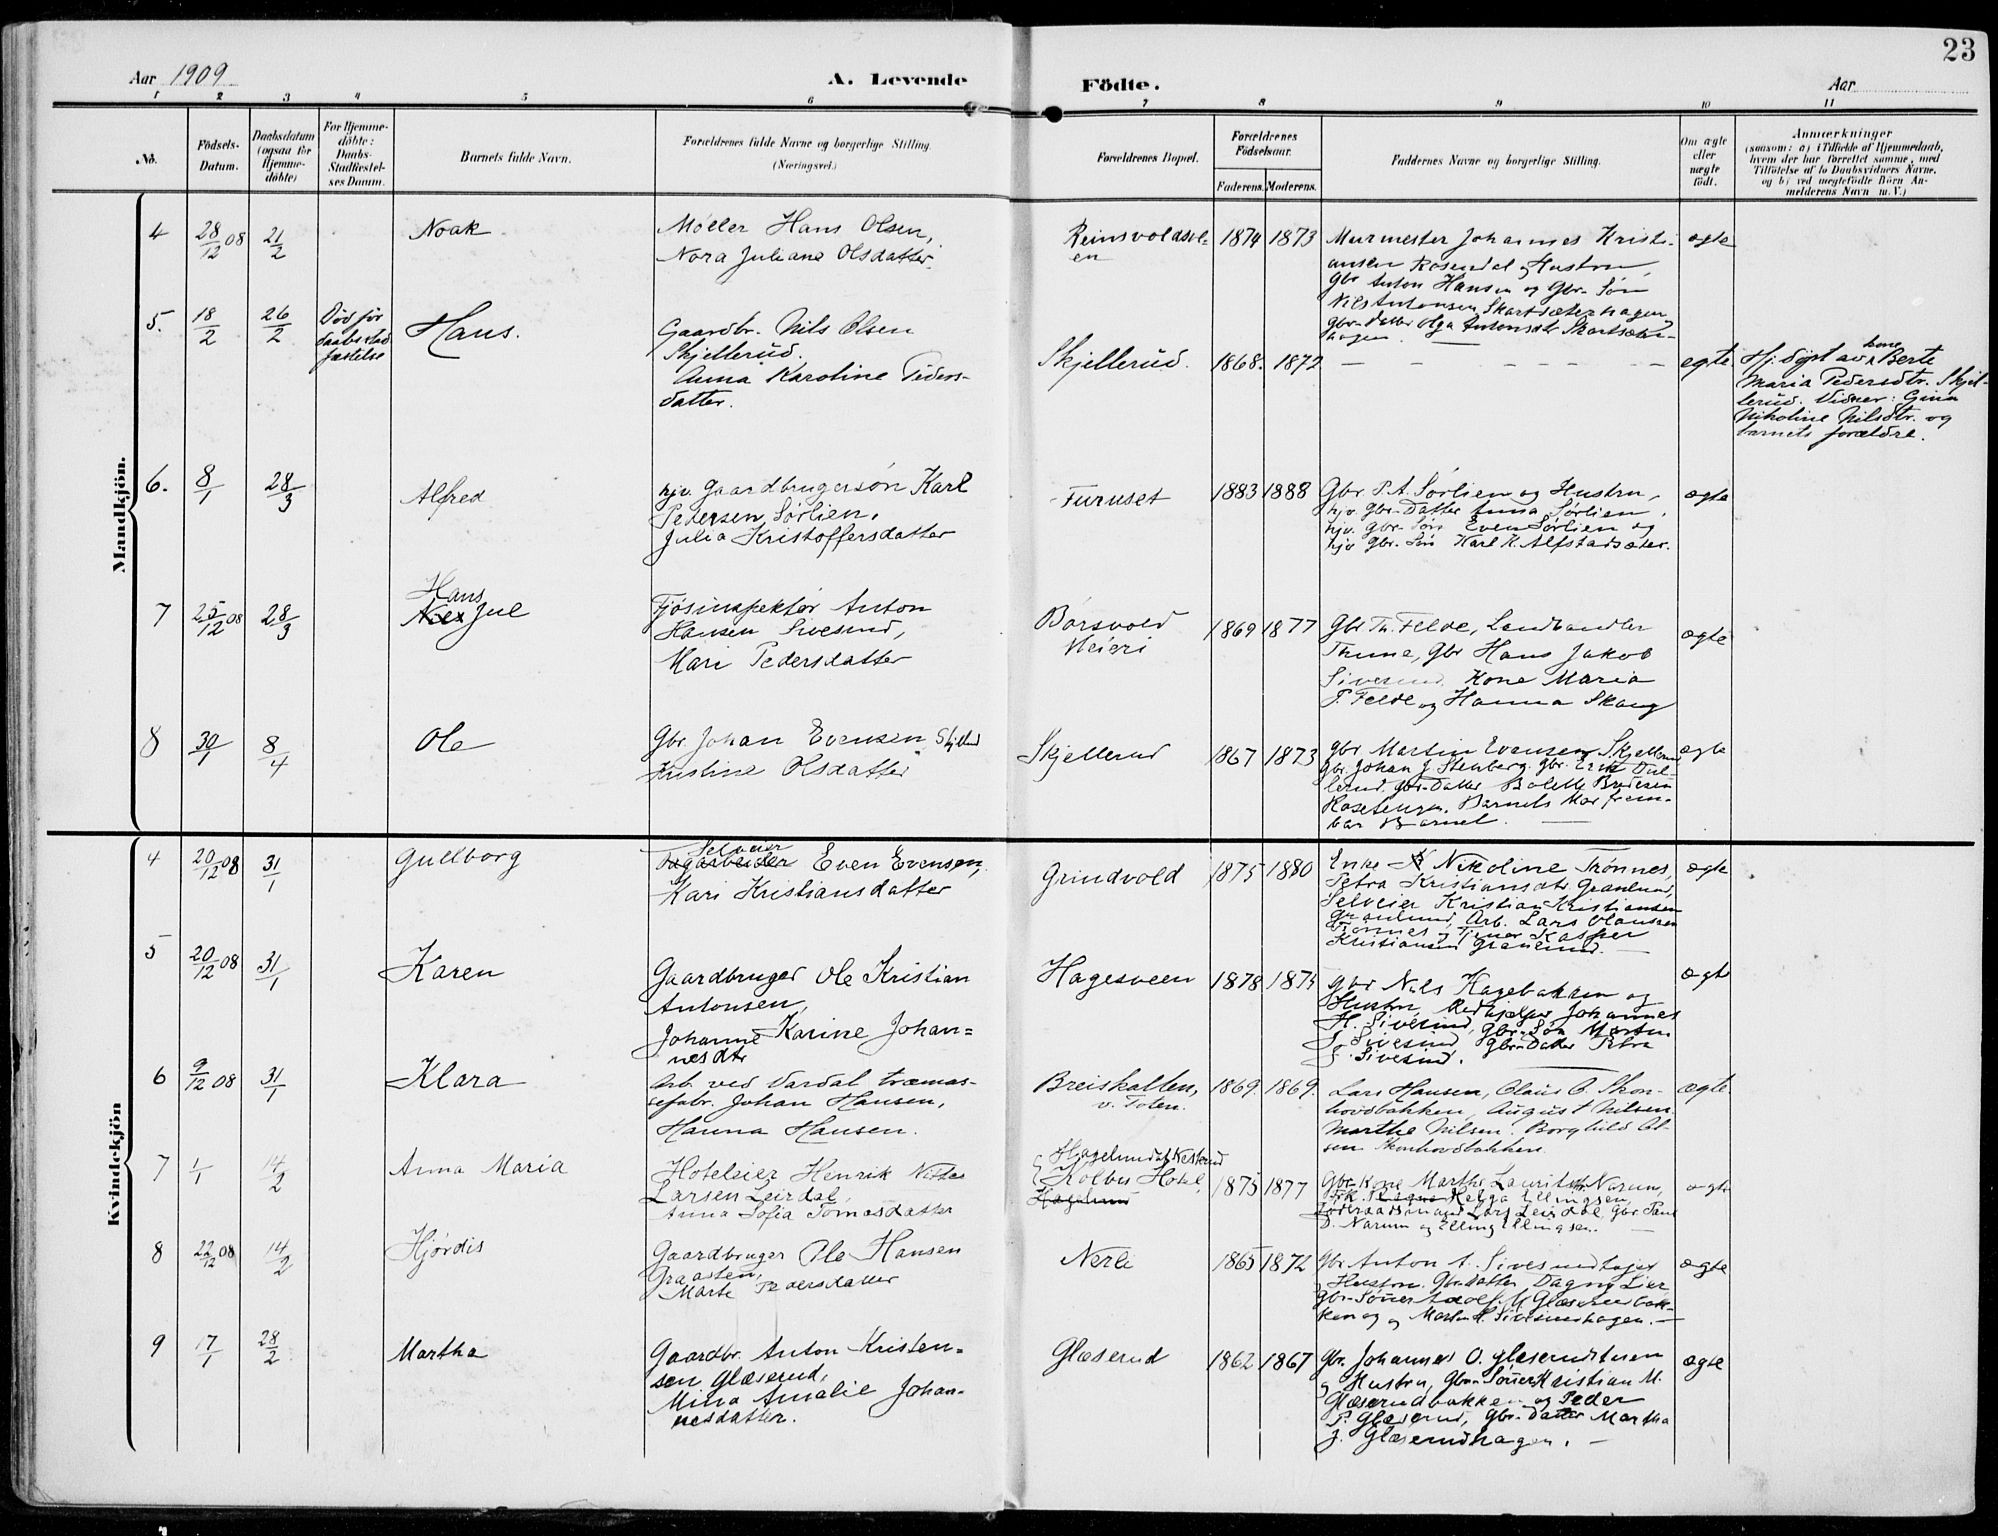 23
Aar 1909 A. Levende Födte. Aar
1 2 3 4 5 6 7 8 9 10 11
No. Födsels-Datum. Daabsdatum (ogsaa for Hjemme-döbte) For Hjemme-döbte: Daabs-Stadfæstel-ses Datum. Barnets fulde Navn. Forældrenes fulde Navne og borgerlige Stilling. (Næringsvei.) Forældrenes Bopæl. Forældrenes Födselsaar. Faderens. Moderens. Faddernes Navne og borgerlige Stilling. Om ægte eller uægte födt. Anmærkninger (saasom: a) i Tilfælde af Hjemmedaab, hvem der har forrettet samme, med Tilföielse af to Daabsvidners Navne, og b) ved uægtefödte Börn An-melderens Navn m. V.)
Mandkjön.
4 28/12 08 21/2 Noak
Møller Hans Olsen,
Nora Juliane Olsdatter.
Reinsvoldsøl-
en
1874 1873
Murmester Johannes Kristi-
ansen Rosendal og Hustru,
Gbr Anton Hansen og Gbr. Søn
Nils Antonsen Skartsæterhagen,
gbr-datter Olga Antonsdtr Skartsæter-
hagen.
ægte
5. 18/2 26/2 Død før
daabsstad
fæstelse
Hans.
Gaardbr. Nils Olsen
Skjellerud.
Anna Karoline Peders-
datter.
Skjellerud. 1868. 1872 — — — — — — ægte.
Hj. døpt av kone Berte
Maria Pedersdtr. Skjel-
lerud. Vidner: Gina
Nikoline Nilsdtr. og
barnets forældre.
6. 8/1 28/3 Alfred
hjv. Gaardbrugersøn Karl
Pedersen Sørlien,
Julia Kristoffersdatter
Furuset 1883 1888
Gbr P. A. Sørlien og Hustru,
hjv. gbr-Datter Anna Sørlien,
hjv. gbr-Søn Even Sørlien og
hjv gbr. Søn Karl K. Alfstadsæter.
ægte
7 25/12 08 28/3 Hans
Jul
Fjøsinspektør Anton
Hansen Sivesind,
Mari Pedersdatter
Børsvold
Meieri
1869 1877
Gbr Th. Felde, Landhandler
Thune, Gbr Hans Jakob
Sivesind. Kone Maria
P. Felde og Hanna Skaug
ægte
8 30/1 8/4 Ole
Gbr. Johan Evensen Skjellerud
Kristine Olsdatter
Skjellerud 1867 1873
gbr Martin Evensen Skjellerud
Gbr. Johan J. Stenberg. gbr. Erik
lerud, gbr-Datter Bolette Bredesen
Rosetengen. Barnets Mor frem-
bar Barnet.
ægte
Kvindekjön
4 20/12 08 31/1 Gullborg
Selveier
Dagarbeider Even Evensen,
Kari Kristiansdatter
Grindvold 1875 1880
Enke Nikoline Trønnes,
Petra Kristiansdtr. Granlund,
Selveier Kristian Kristiansen
Granlund, Arb. Lars Olaussen
Trønnes og Tjener Kasper
Kristiansen Granlund.
ægte
5 20/12 08 31/1 Karen
Gaardbruger Ole Kristian
Antonsen,
Johanne Karine Johan=
nesdtr
Hagesveen 1878 1875
gbr Nils Hagebakken og
Hustru, Medhjælper Johannes
H. Sivesind, Gbr-Søn Martin
J. Sivesind gbr-Datter Petra
J. Sivesind.
ægte
6 9/12 08 31/1 Klara
Arb. ved Vardal træmas-
sefabr. Johan Hansen,
Hanna Hansen.
Breiskallen,
v. Toten.
1869. 1869.
Lars Hansen, Olaus O. Skon-
hovdbakken, August Nilsen.
Marthe Nilsen. Borghild Ol-
sen Skonhovdbakken.
ægte.
7 1/1 14/2 Anna Maria
Hoteleier Henrik
Larsen Leirdal,
Anna Sofia Tomasdatter
Kolbu Hotel,
Hagelund
1875 1877
Gbr Kone Marthe Lauritse Narum,
Frk. Helga Ellingsen,
Lars Leirdal, Gbr Paul
D. Narum og Elling Ellingsen.
ægte
8 22/12 08 14/2 Hjørdis
Gaardbruger Ole Hansen
Graasten,
Marte Pedersdatter
Nerli 1865 1872
Gbr Anton A. Sivesindhagen
Hustru, Gbr-datter Dagny Lier
gbr-Sønner Adolf M. Glæserudbak-
ken og Martin H. Sivesindhagen. —
ægte
9 17/1 28/2 Martha
Gaardbr. Anton Kristen=
sen Glæserud,
Mina Amalie Johan-
nesdatter.
Glæserud 1862 1867
gbr. Johannes O. Glæserudstuen
og Hustru, Gbr-Sønner Kristian M.
Glæserudbakken og Peder
P. Glæserud, Gbr-Datter Martha
J. Glæserudhagen. —
ægte